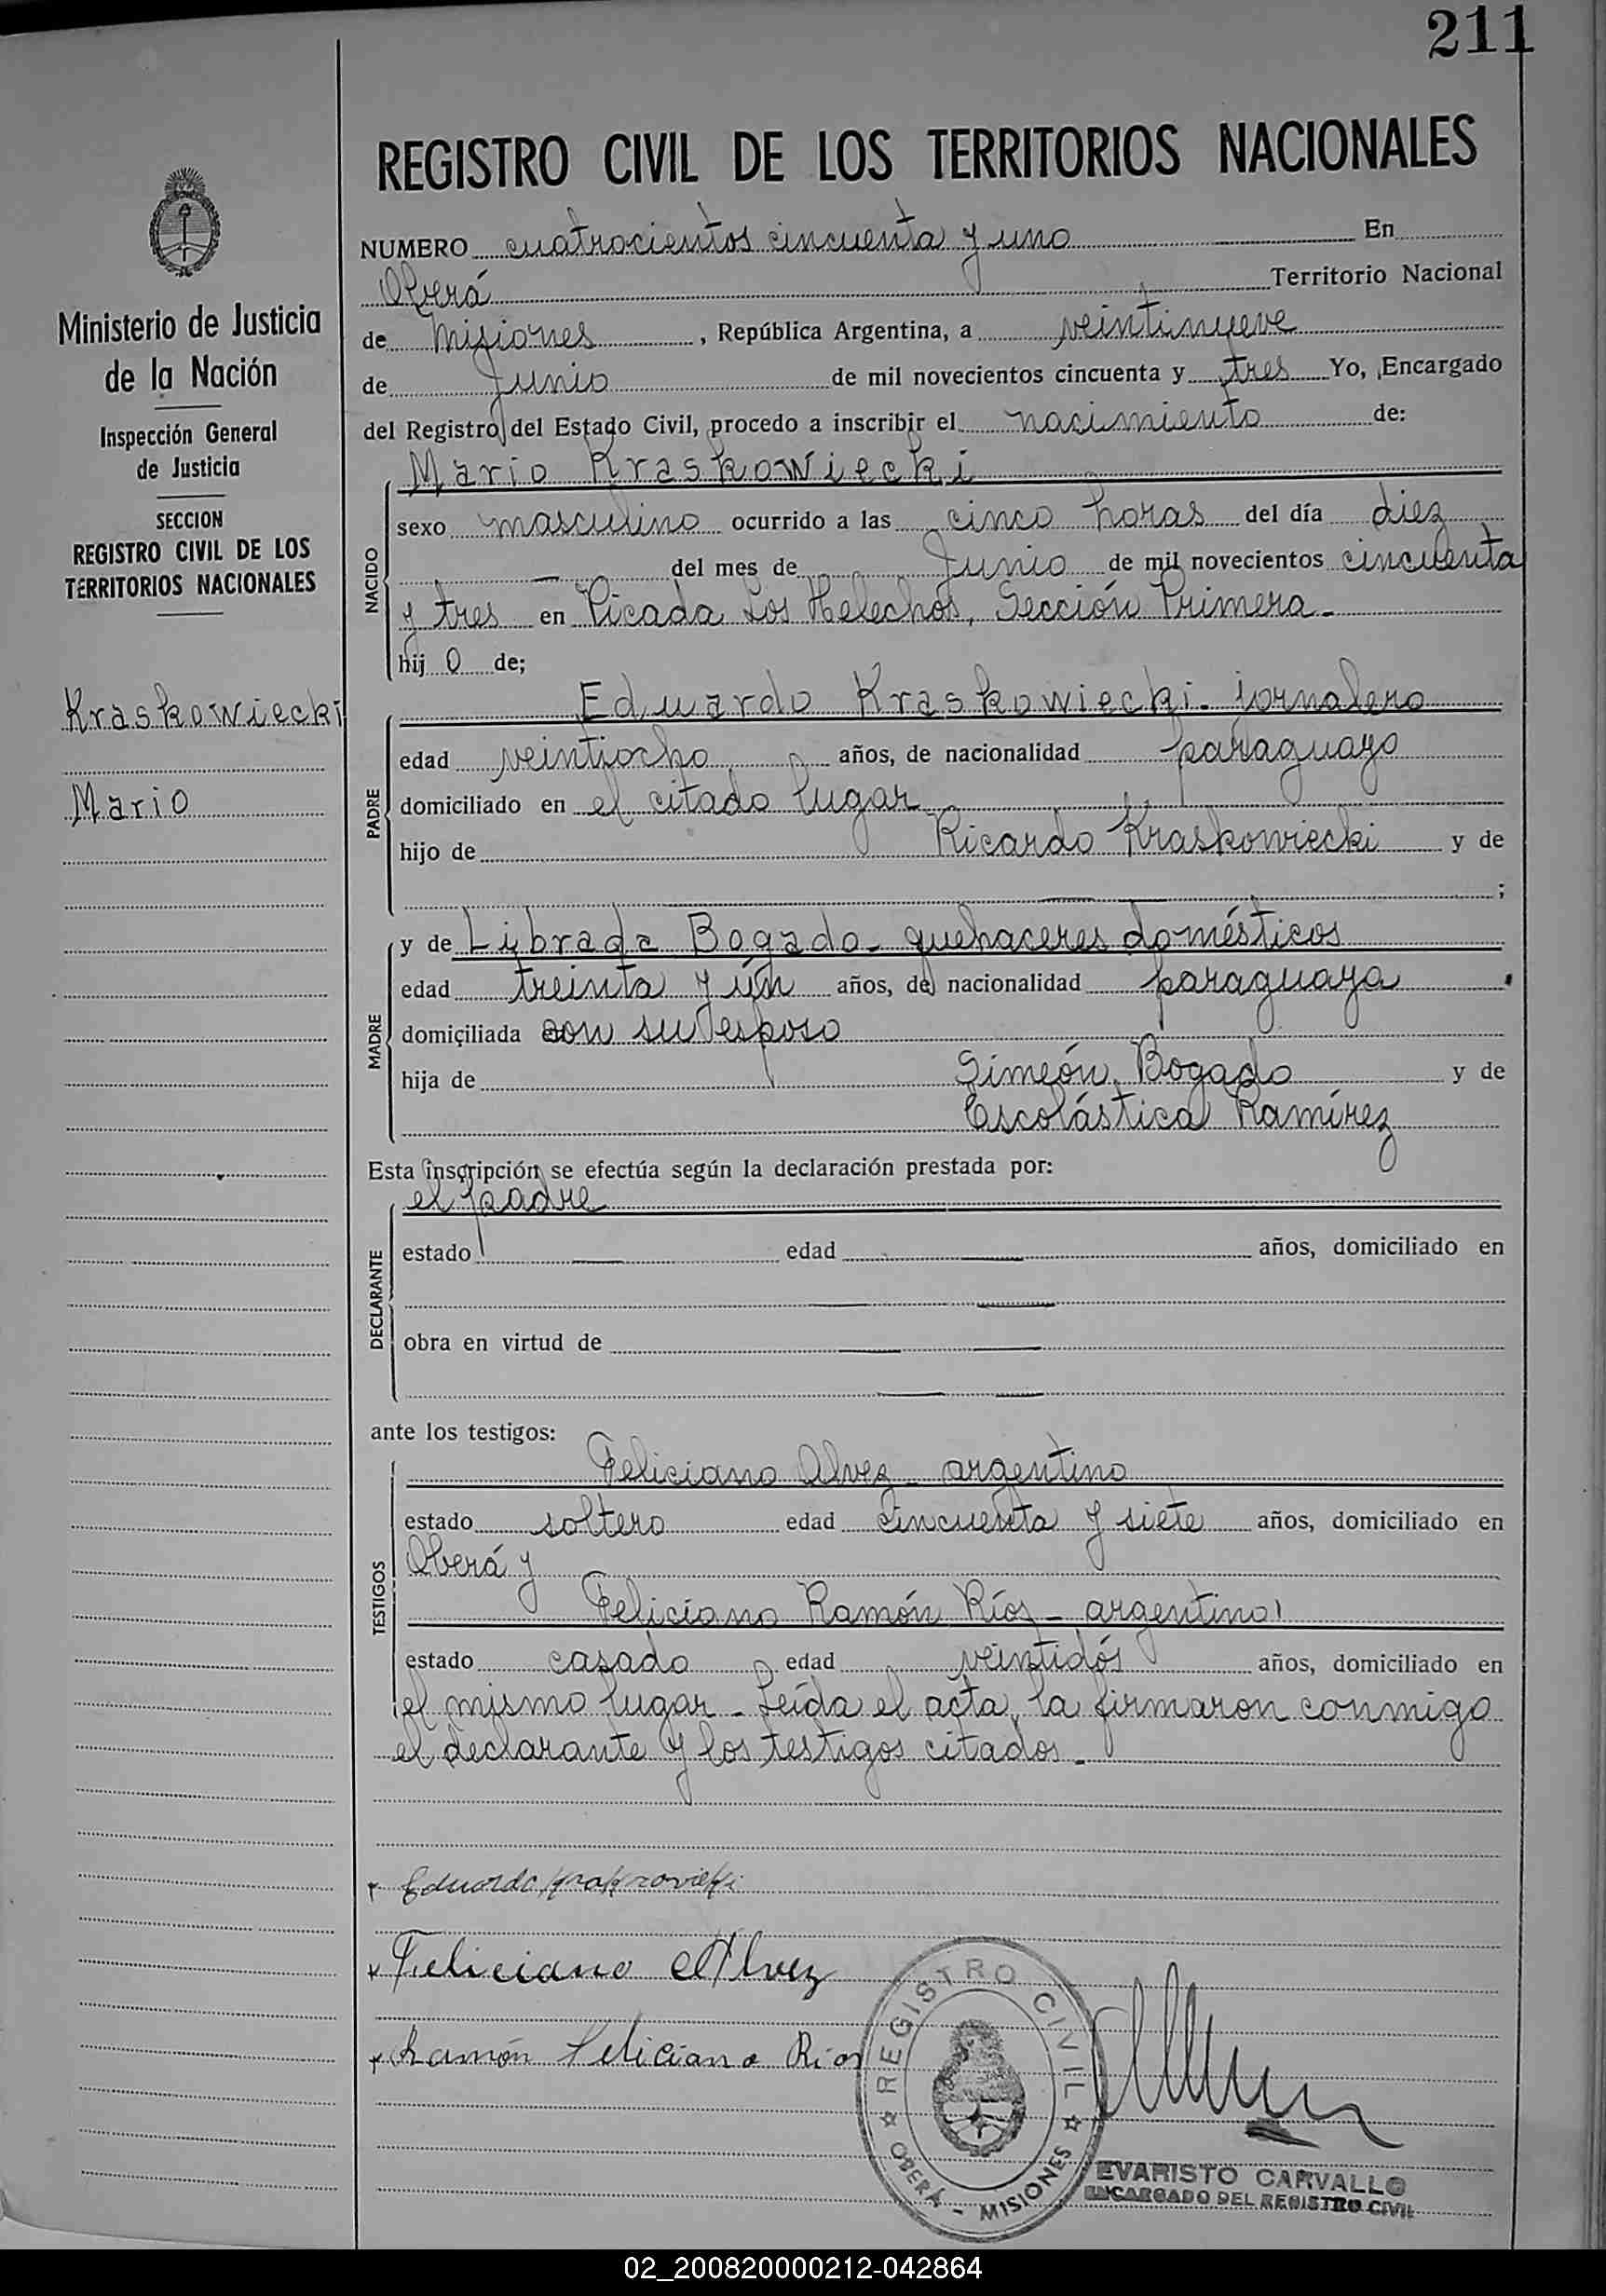 211
REGISTRO CIVIL DE LOS TERRITORIOS NACIONALES
Ministerio de Justicia
de la Nación
Inspección General
de Justicia
SECCION
REGISTRO CIVIL DE LOS
TERRITORIOS NACIONALES
Kraskowiecki
Mario
NUMERO cuatrocientos cincuenta y uno En
Oberá Territorio Nacional
de Misiones, República Argentina, a veintinueve
de Junio de mil novecientos cincuenta y tres Yo, Encargado
del Registro del Estado Civil, procedo a inscribir el nacimiento de:
NACIDO
Mario Kraskowiecki
sexo masculino ocurrido a las cinco horas del día diez
— del mes de Junio de mil novecientos cincuenta
y tres en Picada Los Helechos, Sección Primera-
hijo de;
PADRE
Eduardo Kraskowiecki- jornalero
edad veintiocho años, de nacionalidad paraguayo
domiciliado en el citado lugar
hijo de Ricardo Kraskowiecki y de
— ;
MADRE
y de Librada Bogado- quehaceres domésticos
edad treinta y ún años, de nacionalidad paraguaya
domiciliada con su esposo
hija de Simeón Bogado y de
Escolástica Ramírez
Esta inscripción se efectúa según la declaración prestada por:
DECLARANTE
el padre
estado — edad — años, domiciliado en
— —
obra en virtud de — —
— —
ante los testigos:
TESTIGOS
Feliciano Alvez- argentino
estado soltero edad cincuenta y siete años, domiciliado en
Oberá y
Feliciano Ramón Ríos- argentino
estado casado edad veintidós años, domiciliado en
el mismo lugar- Leída el acta, la firmaron conmigo
el declarante y los testigos citados-
Eduardo Kraskowieki
Feliciano Alvez
Ramón Feliciano Rios
REGISTRO CIVIL
OBERÁ - MISIONES
EVARISTO CARVALLO
ENCARGADO DEL REGISTRO CIVIL
02_200820000212-042864